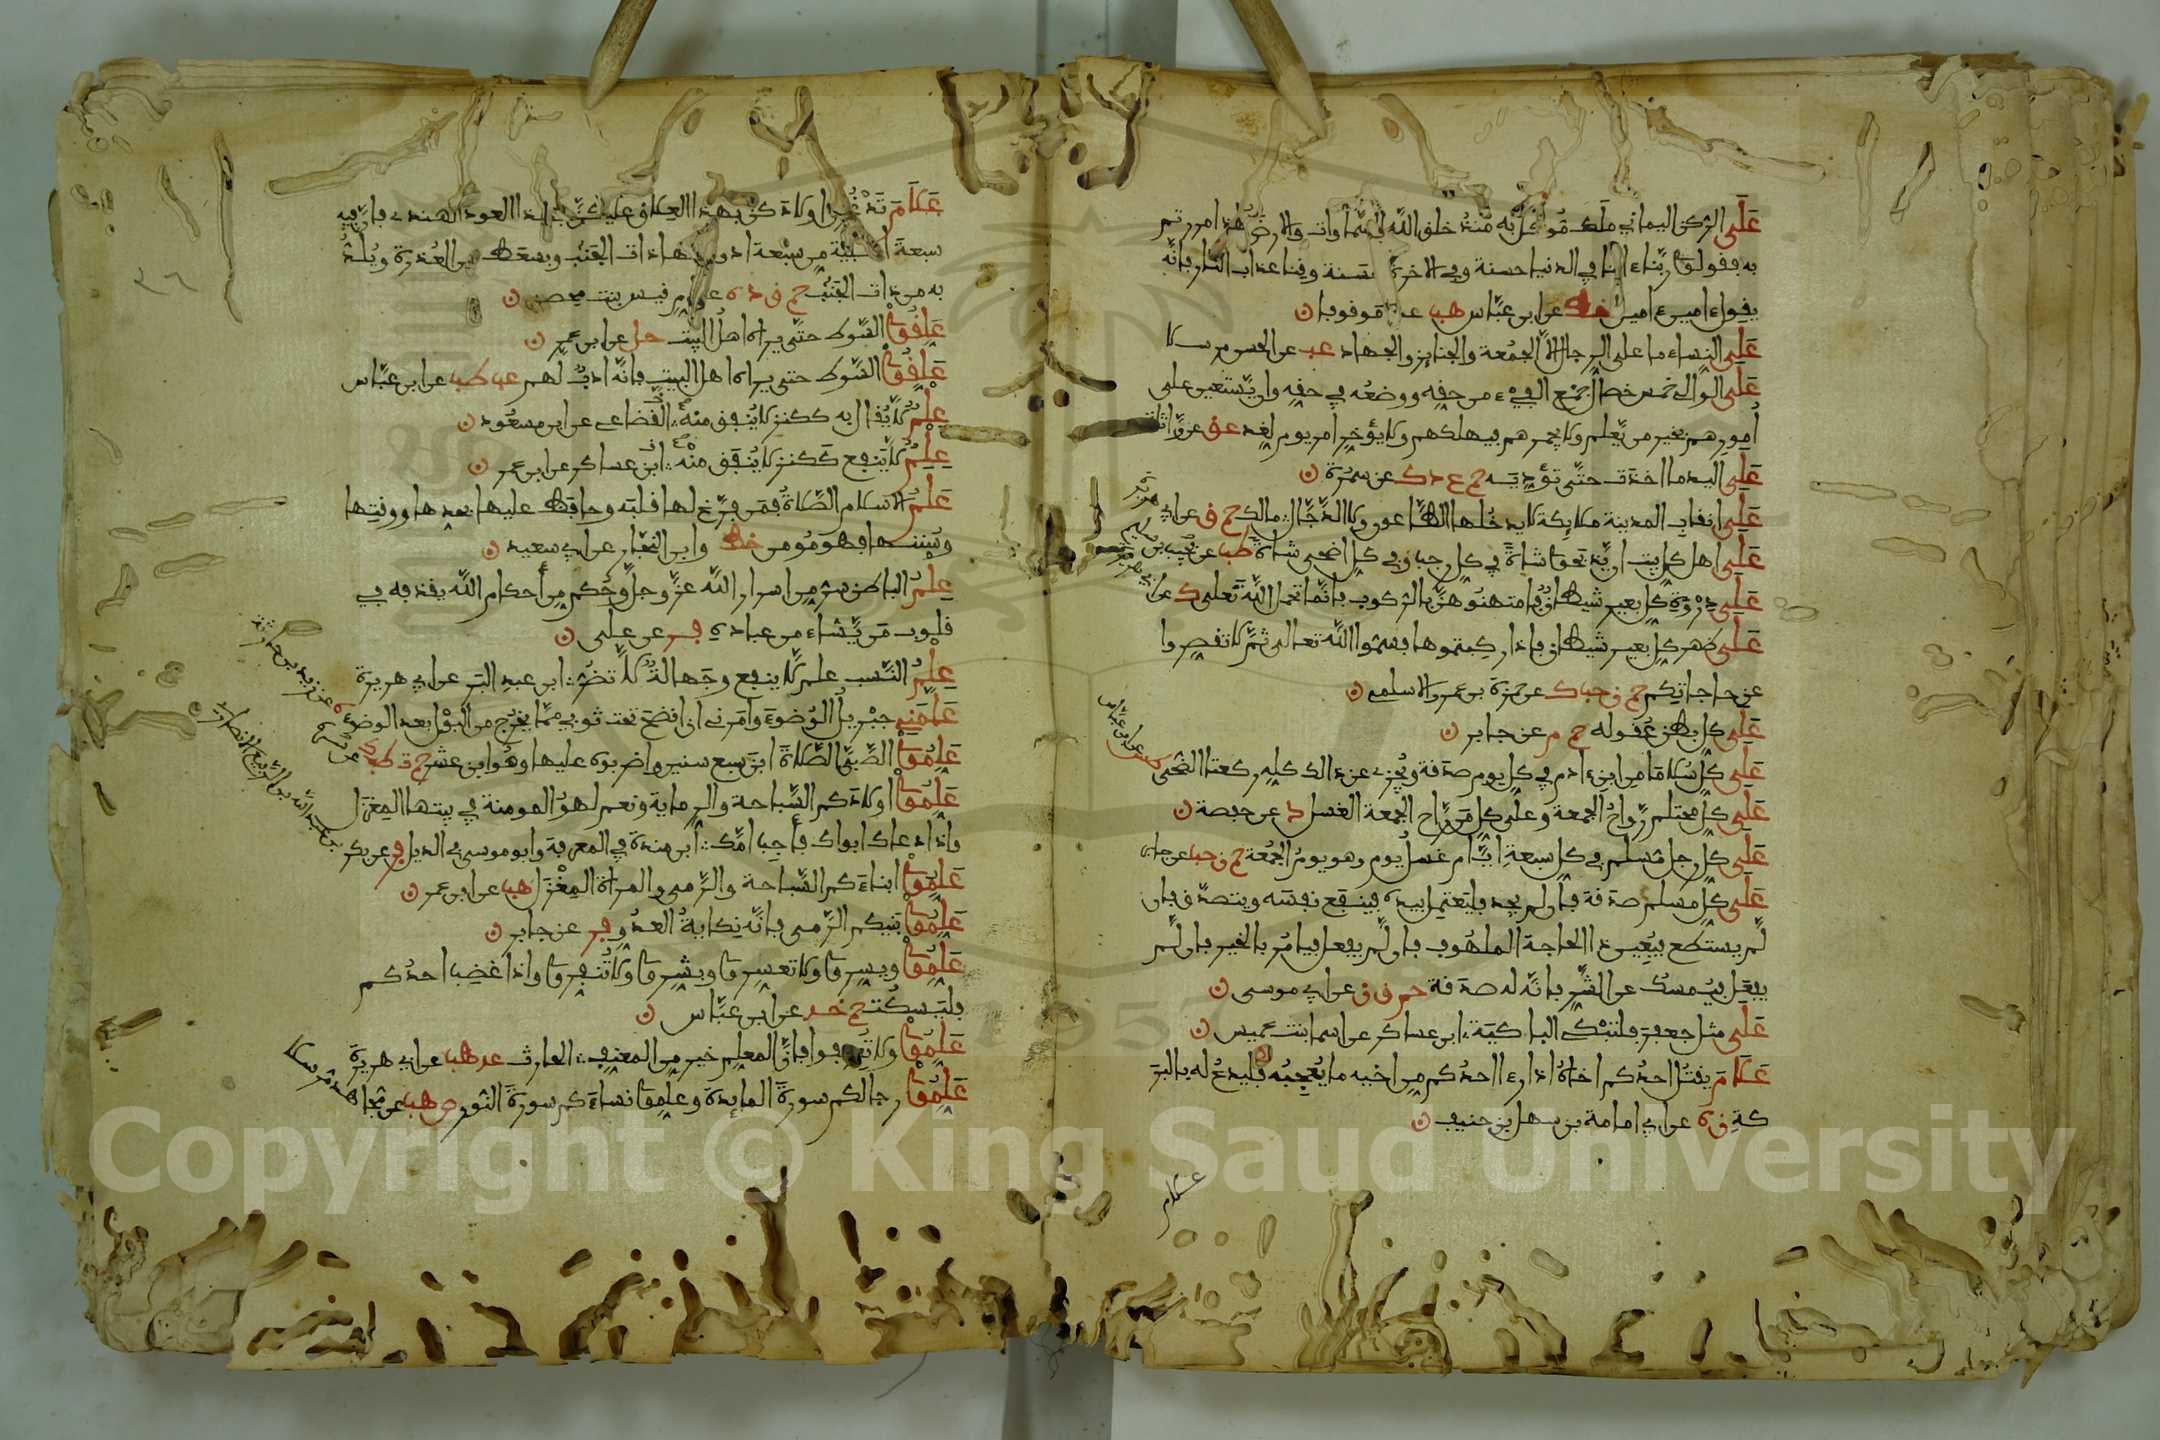 عَلَى الركن اليماني ملك مُوكَّل به مُنْذُ خلق الله السَّماوات والارض فاذا مررتم
به فقولوا ربَّنا ءاتنا في الدنيا حسنة وفي الاخرة حسنة وقنا عذاب النار فانَّه
يقول ءامين ءامين خط عن ابن عبَّاس هب عنه موقوفا ن
عَلَى النِّساء ما على الرجال الاَّ الجُمُعة والجنايز والجهاد عب عن الحسن مرسلا
عَلَى الوالي خمس خصال جَمْع الفيْء من حقِّه ووضعُه في حقِّه وان يَّستعين على
أمورهم بخير من يَّعلم ولا يجمّرهم فيهلكهم ولا يؤخِّر امر يوم لغد عق عن واثلة
عَلَى اليد ما اخذت حتَّى تؤدِّيَه حم ع د ك عن سمُرَة ن
عَلَى انقاب المدينة ملايكة لا يدخلها الطَّاعون ولا الدَّجَّال مالك حم ق عن ابي
هريرة
عَلَى اهل كل بيت ان يَّذبحوا شاة في كل رجب وفي كل اضحى شاة طب عن مخنف بن
سليم
عَلَى ذِرْوَة كل بعير شيطان فامتهنوهنَّ بالركوب فانَّما يحمل اللَّه تعلى ك عن ابي
هريرة
عَلَى ظهر كل بعير شيطان فاذا ركبتموها فسمُّوا اللَّه تعالى ثمَّ لا تقصروا
عن حاجاتكم حم ن حب ك عن حمزة بن عمرو الاسلمي ن
عَلَى كل بطن عُقوله حم م عن جابر ن
عَلَى كل سُلامَى من ابن ءادم في كل يوم صدقة ويُجزي عن ذلك كله ركعتا الضُّحى
طس عن ابن عباس
عَلَى كل محتلم رَّواحُ الجمعة وعلى كل من رَّاح الجمعة الغسل د عن حفصة ن
عَلَى كل رجل مسلم في كل سبعة أيَّام غسل يوم وهو يوم الجُمُعة حم ن حب عن جابر
عَلَى كل مسلم صدقة فان لم يجد فليعتمِل بيده فينفع نفسَه ويتصدَّق فان
لَّم يستطع فيُعين ذا الحاجة الملهوف فان لَّم يفعل فيامُر بالخير فان لَّم
يفعَل فيُمسك عن الشَّر فانَّه له صدقة حم ق ن عن ابي موسى ن
عَلَى مثل جعفر فلتبْكِ الباكية ابن عساكر عن اسما بنت عميس ن
عَلامَ يقتُل احدُكم اخاهُ اذا رءا احدُكم من اخيه ما يُعْجِبُه فليدعُ له بالبر
كةِ ن ه عن ابي امامة بن سهل بن حنيف ن
علام
٢٦
عَلامَ تَدْغَرْن اولادَكنَّ بهذا العلاق عليكنَّ بهذا العود الهندي فانَّ فيه
سبعةَ أشْفِية من سبْعة ادواء منها ذات الجَنْب ويسعَط من العُذرة ويُلَدُّ
به من ذات الجَنْب حم ق د ه عن ام قيس بنت محصن ن
عَلِّقُوا السَّوط حتَّى يراه اهل البيت حل عن ابن عمر ن
عَلِّقُوا السَّوط حتى يراه اهل البيت فانَّه ادبٌ لَّهم عب طب عن ابن عبَّاس
عِلْمٌ لاَّ يُقال به ككنز لا يُنفَق منه القُضاعي عن ابن مسعُود ن
عِلْمٌ لاَّ يَنفع كَكنز لا يُنفَق منْه ابن عساكر عن ابن عمر ن
عَلَمُ الاسلام الصَّلاةُ فمَن فرَّغ لها قلبَه وحافظ عليها بحدِّها ووقتِها
وسُننها فهو مُومن خط وابن النَّجَّار عن ابي سعيد ن
عِلمُ الباطن سر من اسرار اللَّه عزَّ وجلَّ وحُكم من أحكام اللَّه يقذفه في
قلوب مَن يَّشاء من عباده فر عن علي ن
عِلْمُ النَّسب علم لاَّ ينفع وجَهالةٌ لاَّ تضُرُّ ابن عبدِ البَرّ عن ابي هريرة
عَلَّمَنِي جبْريل الوُضوءَ وأمَرني ان انضح تحت ثوبي ممَّا يخرُج من البَوْل بعد الوضوء
ه عن زيد بن حارثة
عَلِّمُوا الصَّبيَّ الصَّلاةَ ابنَ سبع سنين واضربوه عليها وهُو ابن عشر حم ت طب ك
عن سَبرة
عَلِّمُوا اولادَكم السِّباحة والرماية ونعم لهوُ المومنة في بيتها المِغْزَل
واذا دعاك ابواك فأجِب امَّك أبن منْدة في المعرفة وابو موسى في الذيل فر عن بكر
بن عبد اللَّه بن الربيع الانصاري
عَلِّمُوا ابناءَكم السِّباحة والرَّمي والمراة المِغْزَل هب عن ابن عمر ن
عَلِّمُوا بَنِيكم الرَّمي فانَّه نِكايةُ العدُوِّ فر عن جابر ن
عَلِّمُوا ويسِّروا ولا تعسِّروا وبشِّروا ولا تُنفِّروا واذا غضب احدُكم
فليَسكُتْ حم خد عن ابن عبَّاس ن
عَلِّمُوا ولا تُعنِّفوا فانَّ المعلِّم خير من المعنِّف الحارث عد هب عن ابي هريرة
عَلِّمُوا رجالَكم سورةَ المايدة وعلِّموا نساءَكم سورةَ النُّور ص هب عن مجا
هد مرسلا